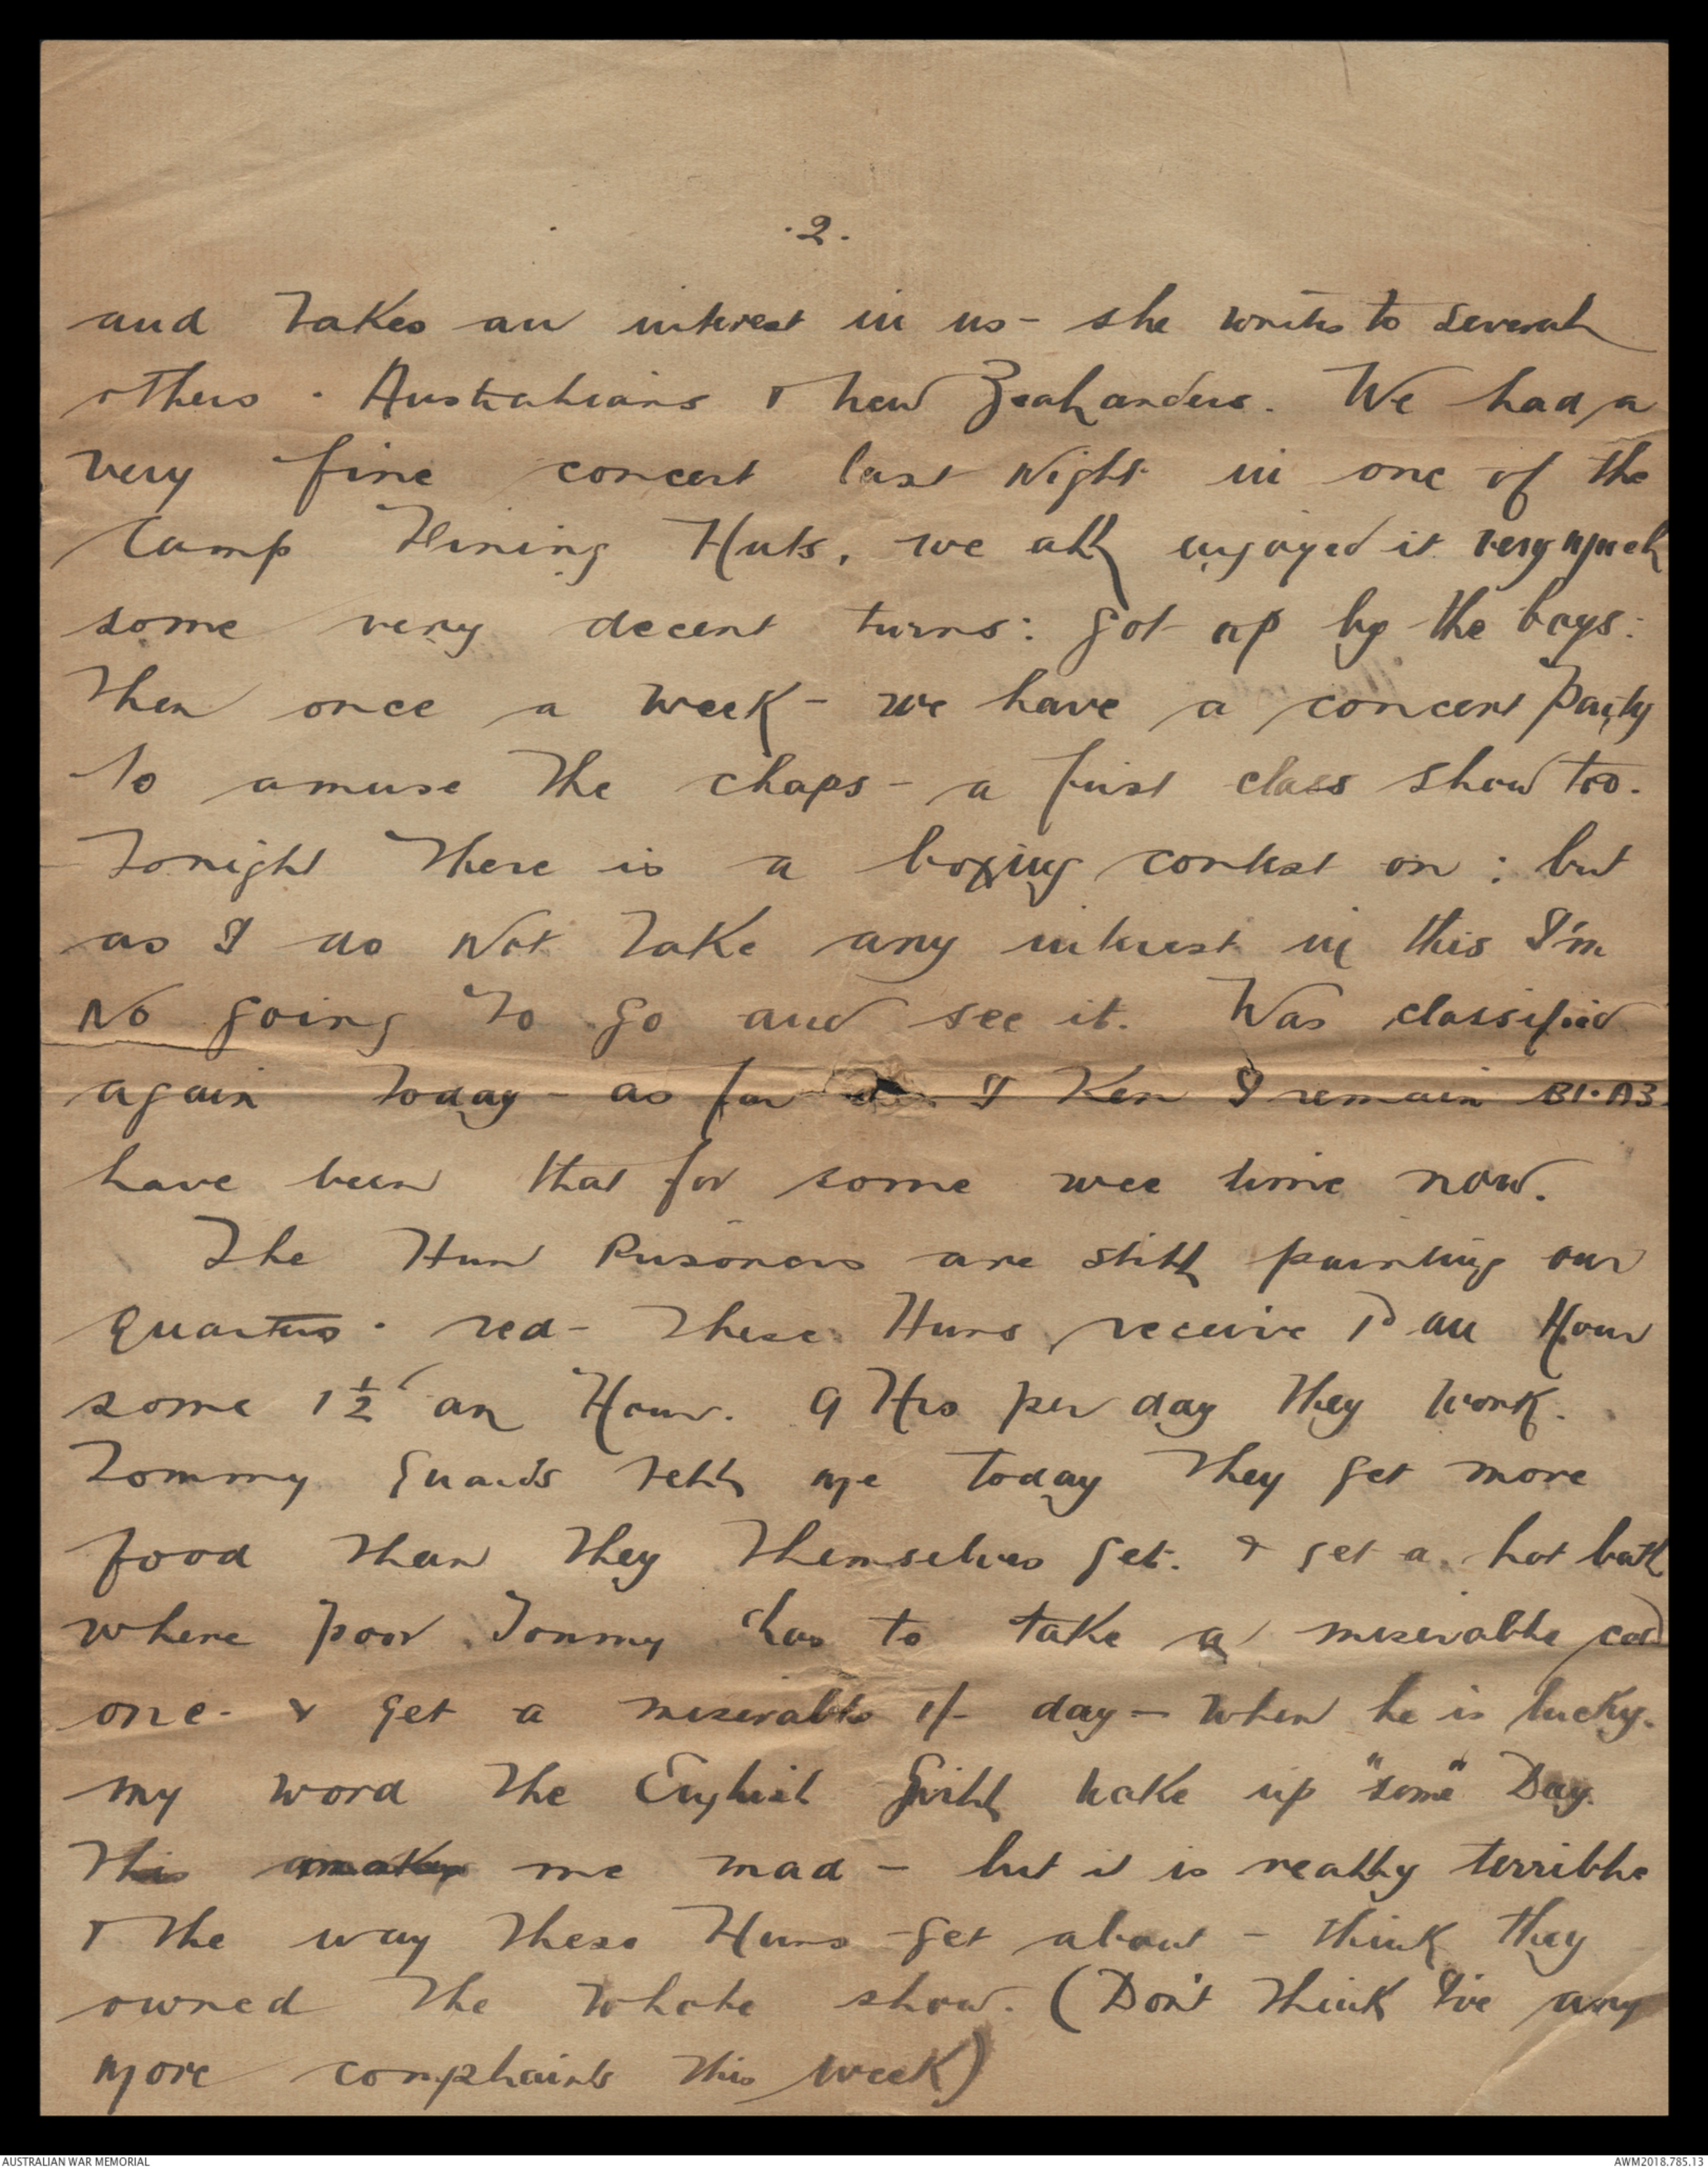 .2.
and takes an interest in us - she writes to several
others. Australians & New Zealanders. We had a
very fine concert last Night in one of the
Camp Dining Huts, we all enjoyed it very much
some very decent turns: got up by the boys:
Then once a week - we have a concert Party
to amuse the chaps - a first class show too.
Tonight there is a boxing contest on: but
as I do Not take any interest in this I'm
No going to go and see it. Was classified
again today - as far as I Ken I remain B1.A3.
have been that for some wee time now.
The Hun Prisoners are still painting our
Quarters. red - these Huns receive 1D an Hour
some 1½ an Hour. 9 Hrs per day they work.
Tommy Guards tell me today they get more
food than they themselves get. & get a hot bath
where poor Tommy has to take a miserable cold
one - & get a miserable 1/- day - when he is lucky.
my word the English will wake up "some" Day.
This makes me mad - but it is really terrible
& the way these Huns get about - think they
owned the whole show. (Don't think I've any
more complaints this week)
AUSTRALIAN WAR MEMORIAL
AWM2018.785.13